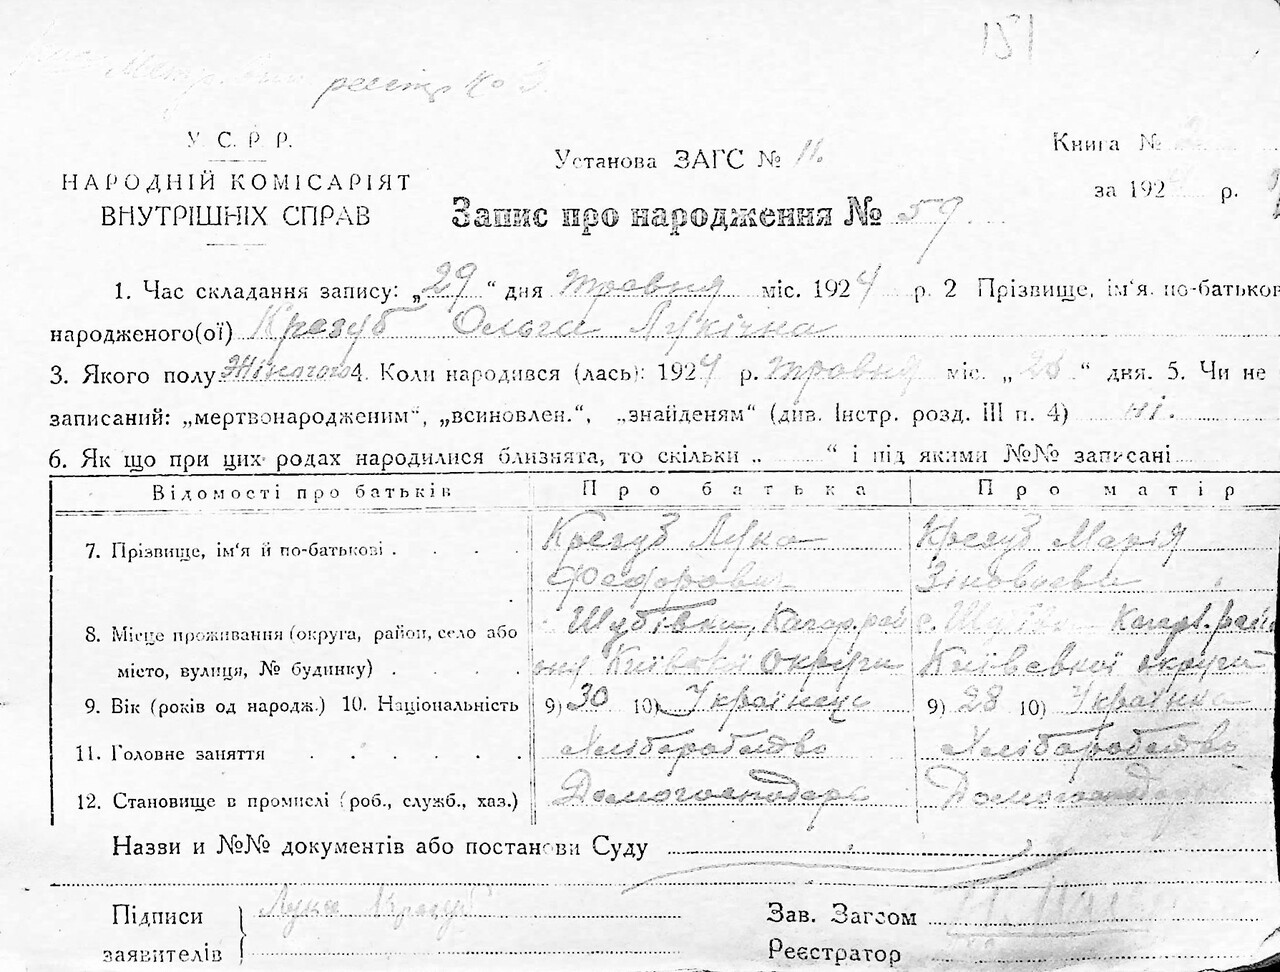 151
реєстр № 3.
У. С. Р. Р.
НАРОДНІЙ КОМІСАРІЯТ
ВНУТРІШНІХ СПРАВ
Установа ЗАГС № 11.
Книга №
за 192 р.
Запис про народження № 59
1. Час складання запису: „29“ дня травня міс. 1924 р. 2 Прізвище, ім‘я. по-батькові
народженого(ої) Крегуб Ольга Лукічна
3. Якого полу Жіночого 4. Коли народився (лась): 1924 р. травня міс. „28“ дня. 5. Чи не
записаний: „мертвонародженим“, „всиновлен.“, „знайденям“ (див. Інстр. розд. III п. 4) ні.
6. Як що при цих родах народилися близнята, то скільки „ “ і під якими №№ записані
Відомості про батьків Про батька Про матір
7. Прізвище, ім‘я й по-батькові . . . . Крегуб Лука Крегуб Марія
Федорович Зіновієви
8. Місце проживання (округа, район, село або Шубівки, Кагар. рай с. Кагарл. рай
місто, вулиця, № будинку) . . . . ону Київської Округи Київської округи
9. Вік (років од народж.) 10. Національність 9) 30 10) Українець 9) 28 10) Українка
11. Головне заняття . . . . . Хліборобство Хліборобство
12. Становище в промислі (роб., служб., хаз.) Домогосподарь
Назви и №№ документів або постанови Суду
Підписи
заявителів
Лука Крегуб
Зав. Загсом
Реєстратор